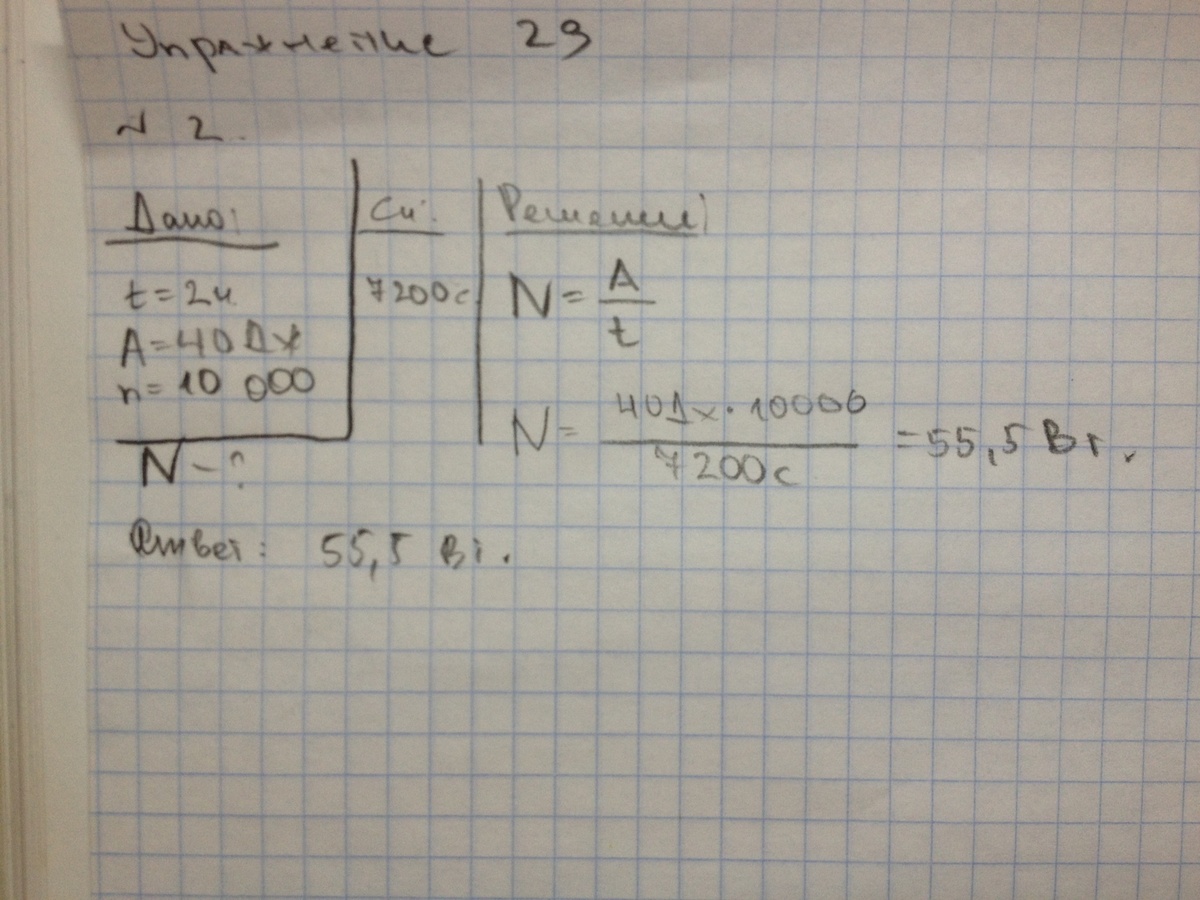 Упражнение 29
N 2.
Дано:
t = 2ч
A = 40 Дж
n = 10 000
N - ?
Си:
7200с
Решение:
N = A / t
N = 40Дж · 10000 / 7200с = 55,5 Вт.
Ответ: 55,5 Вт.